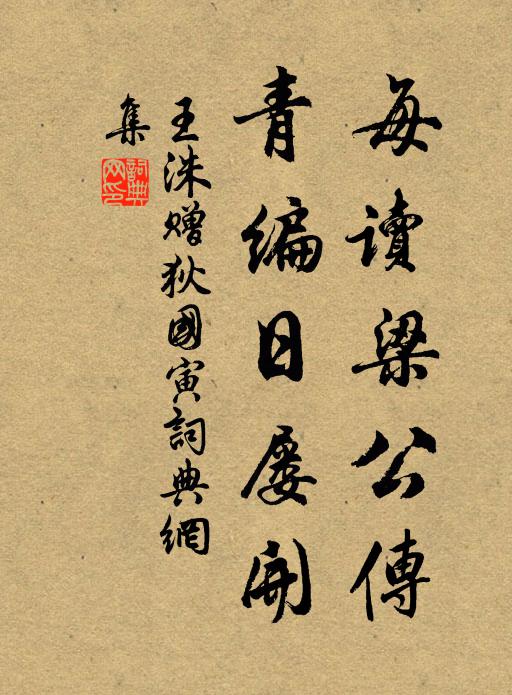 每讀梁公傳
青編日屢開
王洙贈狄國寅詞典網
集
詞典網印